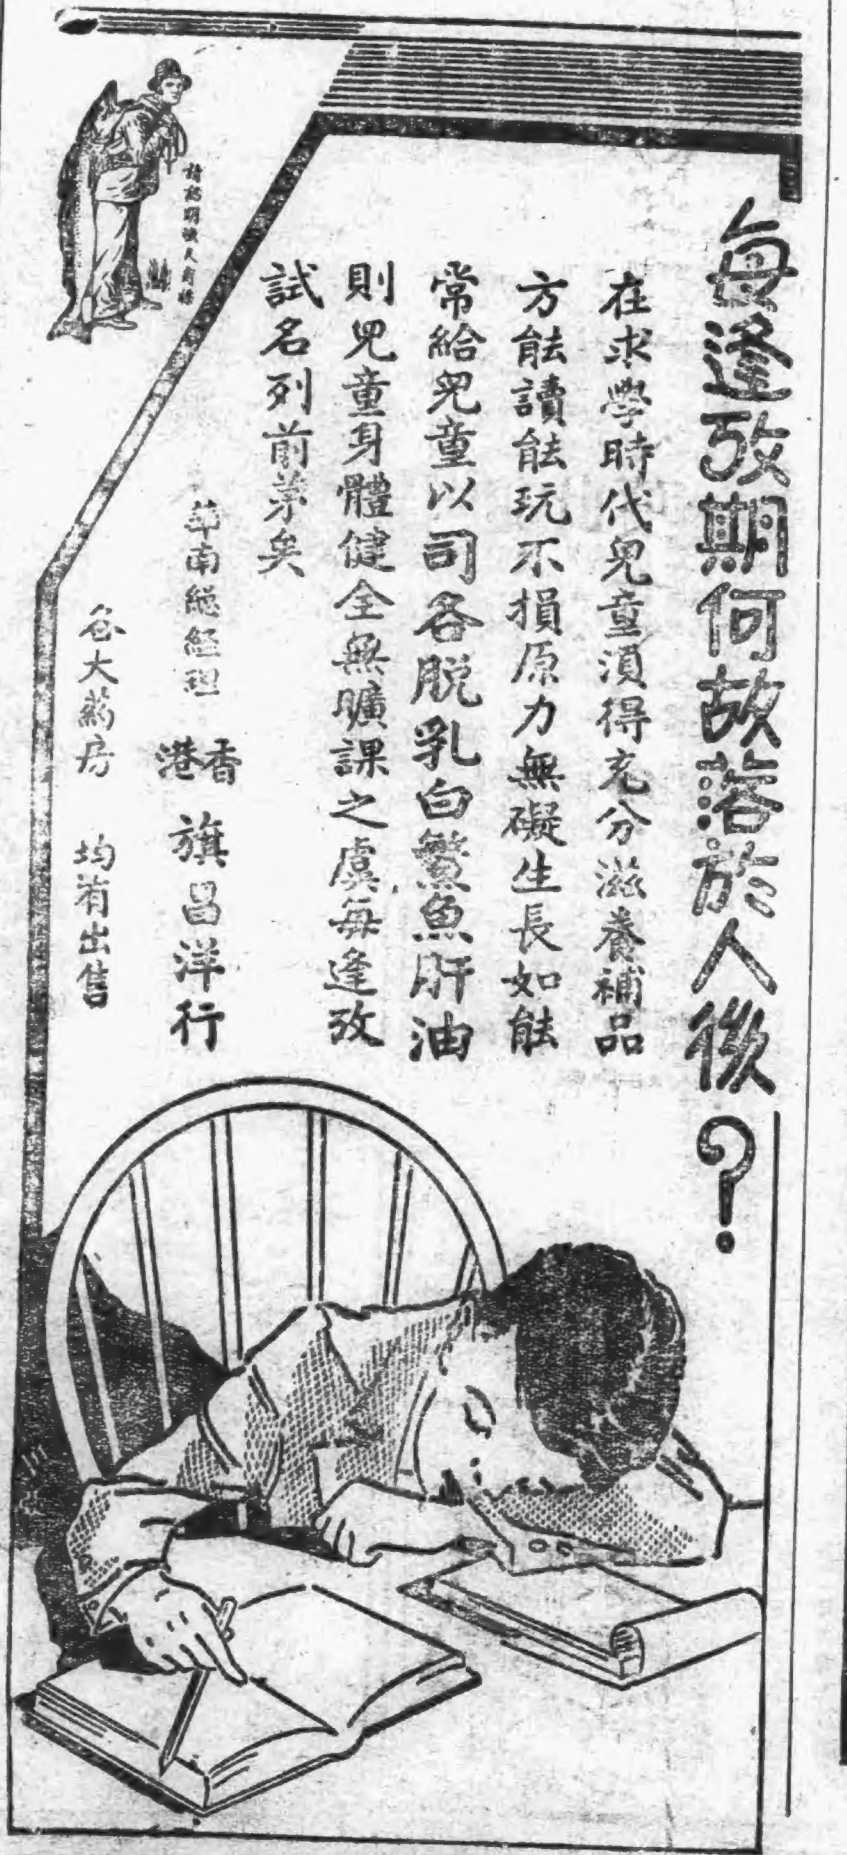 每逢攷期何故落於人後？
在求學時代兒童須得充分滋養補品
方能讀能玩不損原力無礙生長如能
常給兒童以司各脫乳白鱉魚肝油
則兒童身體健全無曠課之虞每逢攷
試名列前茅矣
華南總經理
香港
旗昌洋行
各大葯房
均有出售
請認明漁夫商標